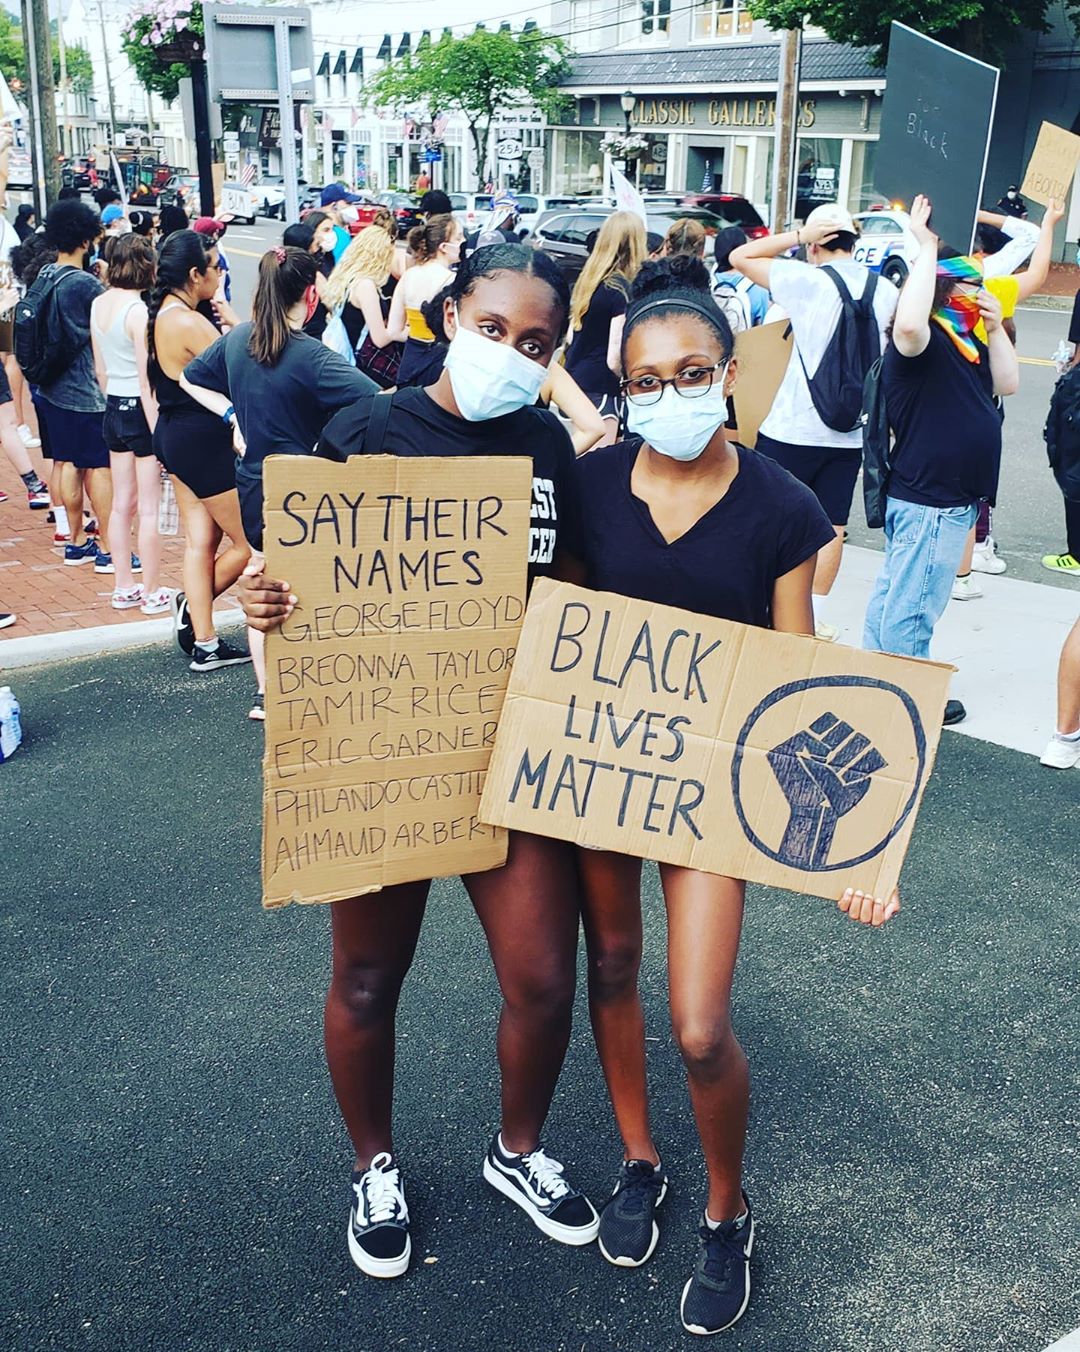 CLASSIC GALLERIES
25A
BLM
Black
CE
SAY THEIR
NAMES
GEORGE FLOYD
BREONNA TAYLOR
TAMIR RICE
ERIC GARNER
PHILANDO CASTIL
AHMAUD ARBERY
ST
CER
BLACK
LIVES
MATTER